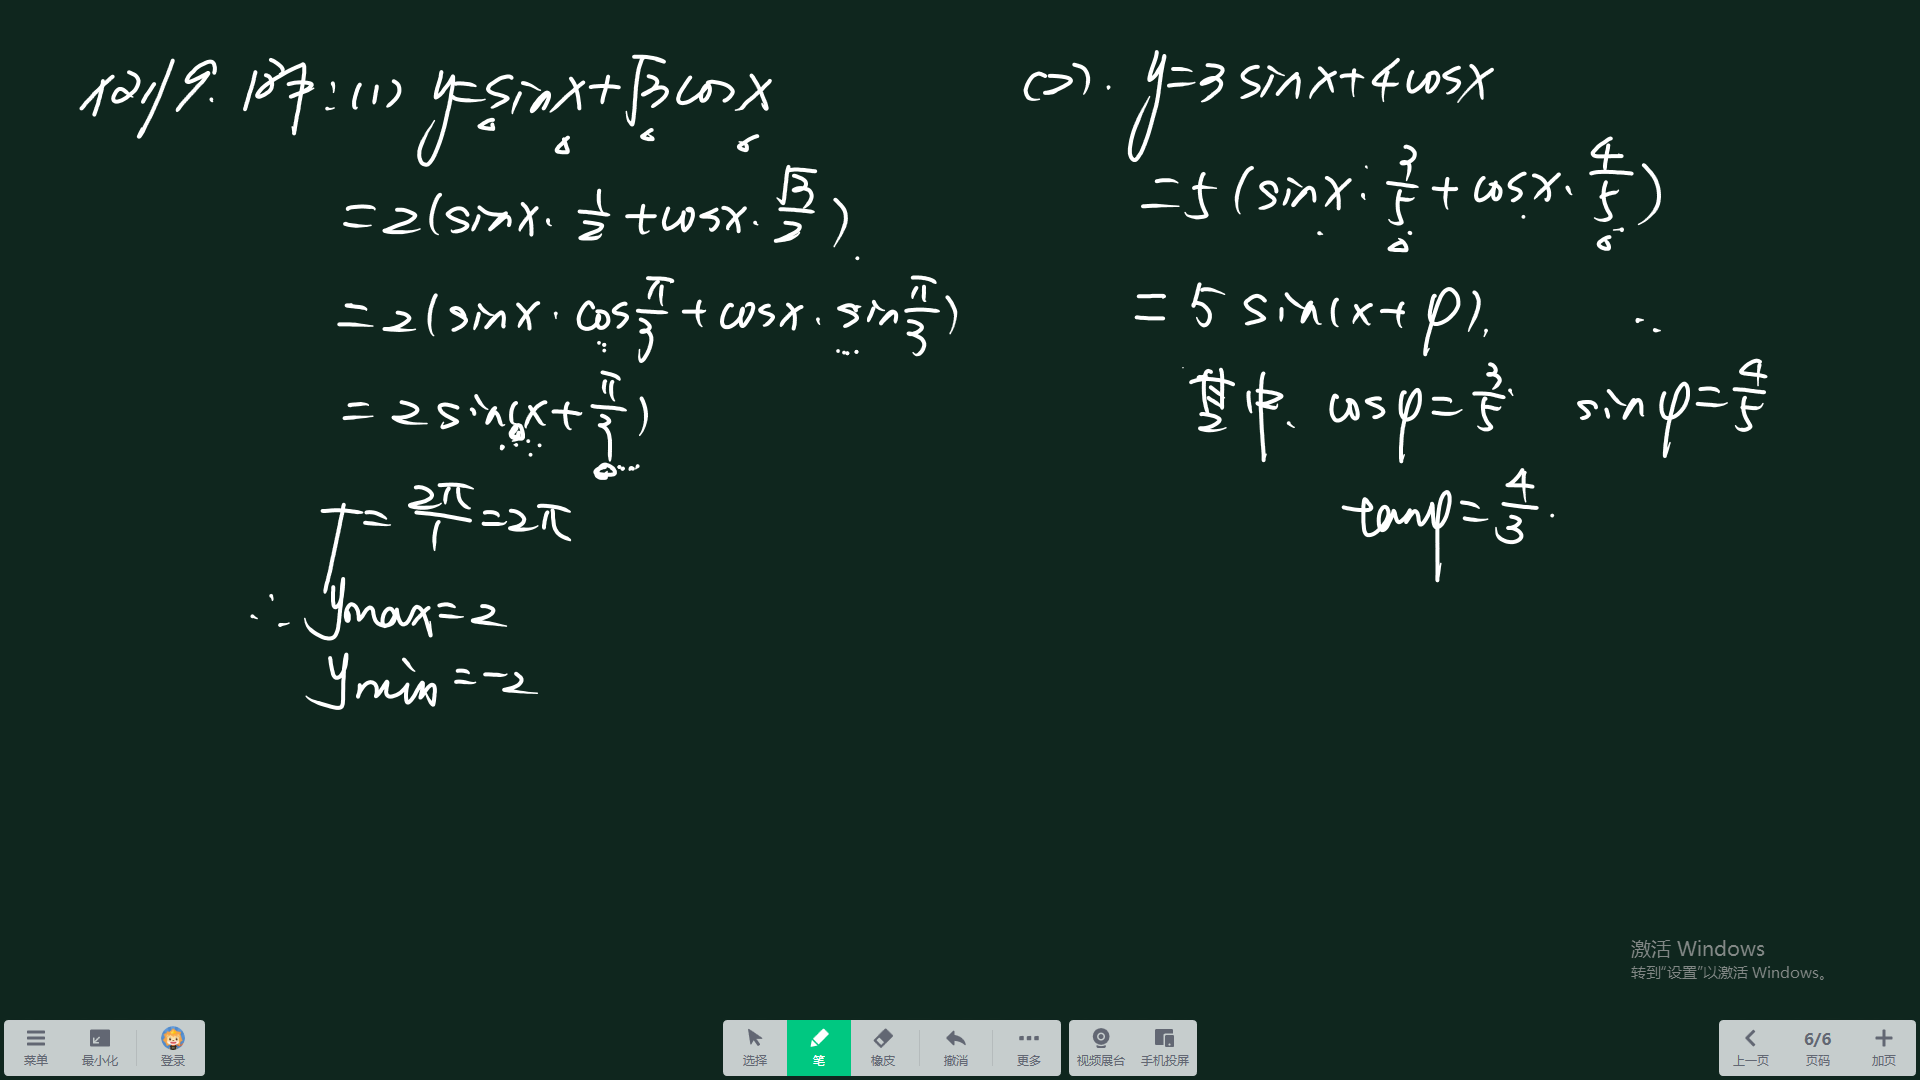 例9. 解:(1) y=sinx+√3cosx
=2(sinx·1/2+cosx·√3/2).
=2(sinx·cosπ/3+cosx·sinπ/3)
=2sin(x+π/3)
T=2π/1=2π
∴ymax=2
ymin=-2
(2). y=3sinx+4cosx
=5(sinx·3/5+cosx·4/5)
=5sin(x+φ),
其中, cosφ=3/5, sinφ=4/5
tanφ=4/3.
激活 Windows
转到“设置”以激活 Windows。
菜单 最小化 登录 选择 笔 橡皮 撤消 更多 视频展台 手机投屏 上一页 6/6 页码 加页